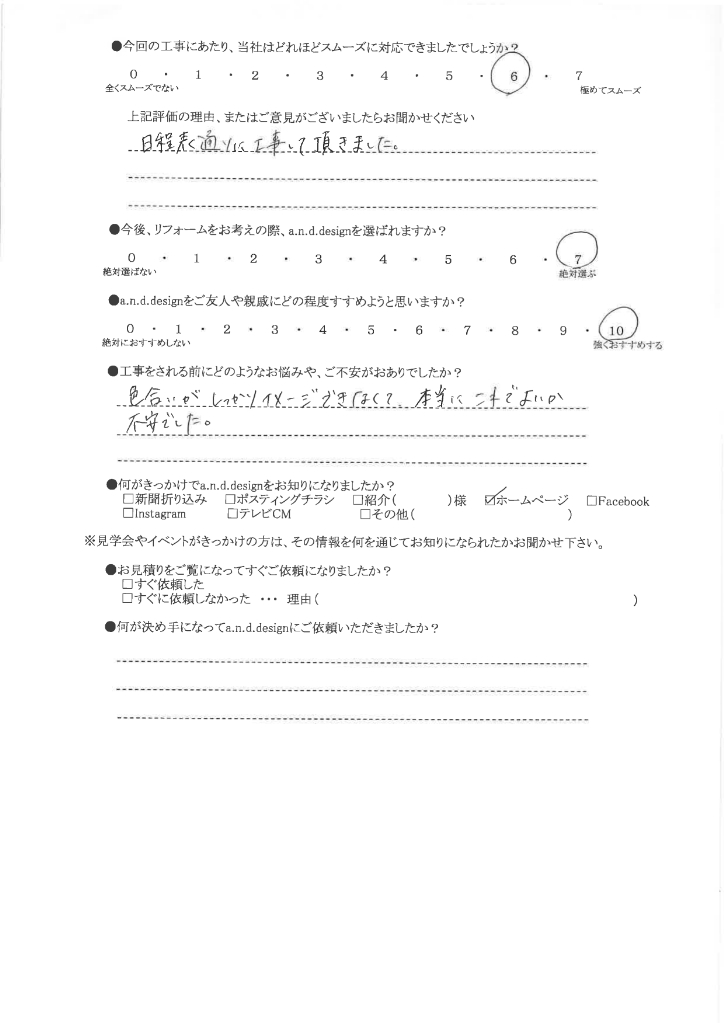 ●今回の工事にあたり、当社はどれほどスムーズに対応できましたでしょうか？
0 ・ 1 ・ 2 ・ 3 ・ 4 ・ 5 ・ 6 ・ 7
全くスムーズでない 極めてスムーズ
上記評価の理由、またはご意見がございましたらお聞かせください
日程表通りに工事して頂きました。
●今後、リフォームをお考えの際、a.n.d.designを選ばれますか？
0 ・ 1 ・ 2 ・ 3 ・ 4 ・ 5 ・ 6 ・ 7
絶対選ばない 絶対選ぶ
●a.n.d.designをご友人や親戚にどの程度すすめようと思いますか？
0 ・ 1 ・ 2 ・ 3 ・ 4 ・ 5 ・ 6 ・ 7 ・ 8 ・ 9 ・ 10
絶対におすすめしない 強くおすすめする
●工事をされる前にどのようなお悩みや、ご不安がおありでしたか？
色合いがしっかりイメージできなくて、本当にこれでよいか
不安でした。
●何がきっかけでa.n.d.designをお知りになりましたか？
□新聞折り込み □ポスティングチラシ □紹介（ ）様 ☑ホームページ □Facebook
□Instagram □テレビCM □その他（ ）
※見学会やイベントがきっかけの方は、その情報を何を通じてお知りになられたかお聞かせ下さい。
●お見積りをご覧になってすぐご依頼になりましたか？
□すぐ依頼した
□すぐに依頼しなかった ・・・ 理由（ ）
●何が決め手になってa.n.d.designにご依頼いただきましたか？